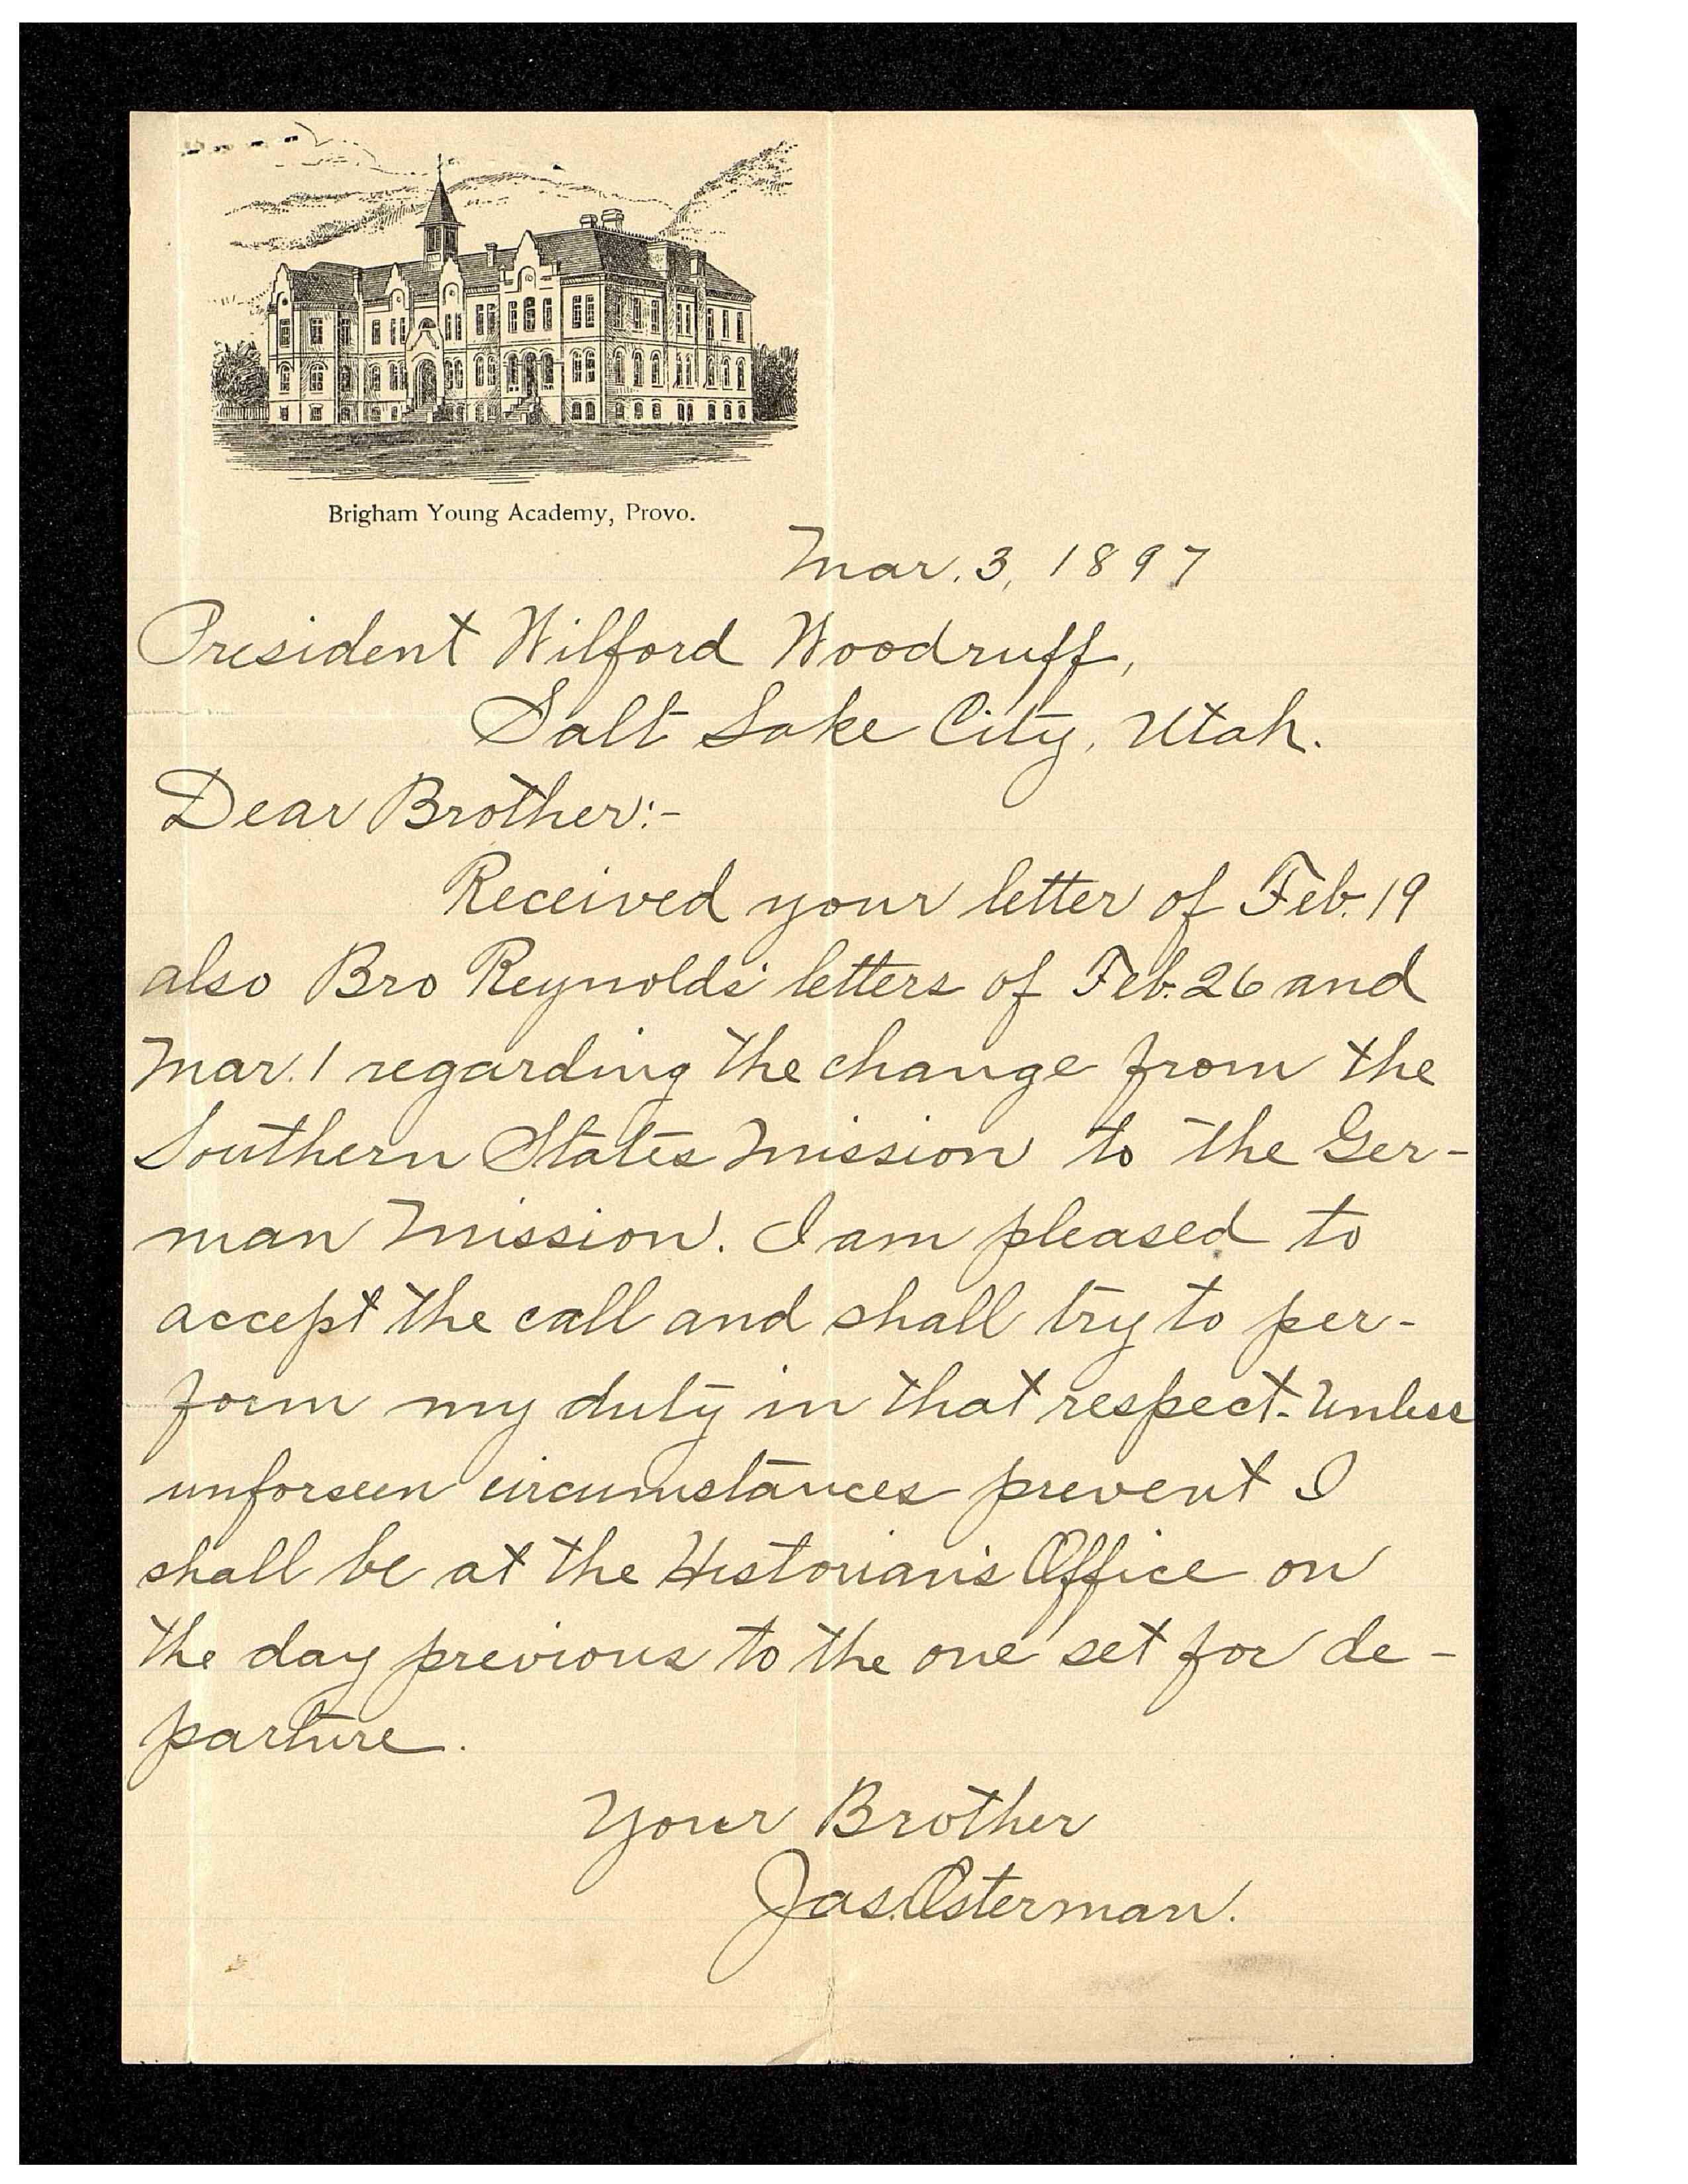 Brigham Young Academy, Provo.
Mar. 3, 1897
President Wilford Woodruff,
Salt Lake City, Utah.
Dear Brother:-
Received your letter of Feb. 19
also Bro Reynolds' letters of Feb. 26 and
Mar. 1 regarding the change from the
Southern States Mission to the Ger-
man Mission. I am pleased to
accept the call and shall try to per-
form my duty in that respect. Unless
unforseen circumstances prevent I
shall be at the Historian's Office on
the day previous to the one set for de-
parture.
Your Brother
Jas. Osterman.